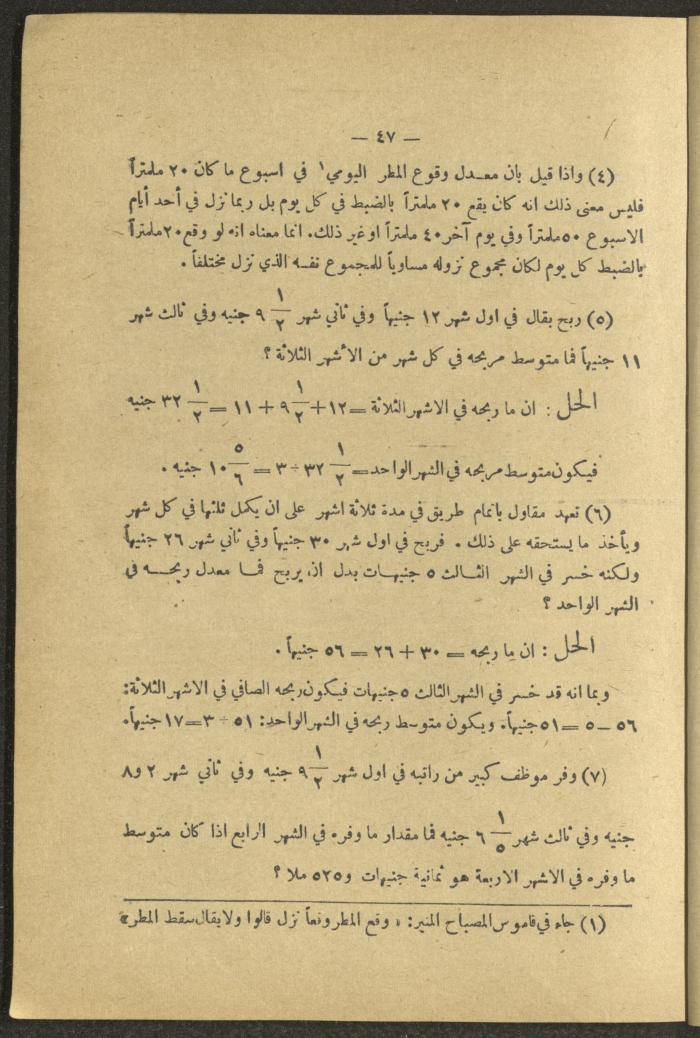 — ٤٧ —
(٤) واذا قيل بان معدل وقوع المطر اليومي¹ في اسبوع ما كان ٢٠ ملمتراً
فليس معنى ذلك انه كان يقع ٢٠ ملمتراً بالضبط في كل يوم بل ربما نزل في أحد أيام
الاسبوع ٥٠ ملمتراً وفي يوم آخر ٤٠ ملمتراً او غير ذلك. انما معناه انه لو وقع ٢٠ ملمتراً
بالضبط كل يوم لكان مجموع نزوله مساوياً للمجموع نفسه الذي نزل مختلفاً .
(٥) ربح بقال في اول شهر ١٢ جنيهاً وفي ثاني شهر ١/٢ ٩ جنيه وفي ثالث شهر
١١ جنيهاً فما متوسط مربحه في كل شهر من الأشهر الثلاثة ؟
الحل : ان ما ربحه في الاشهر الثلاثة = ١٢ + ١/٢ ٩ + ١١ = ١/٢ ٣٢ جنيه
فيكون متوسط مربحه في الشهر الواحد = ١/٢ ٣٢ ÷ ٣ = ٥/٦ ١٠ جنيه .
(٦) تعهد مقاول باتمام طريق في مدة ثلاثة اشهر على ان يكمل ثلثها في كل شهر
ويأخذ ما يستحقه على ذلك . فربح في اول شهر ٣٠ جنيهاً وفي ثاني شهر ٢٦ جنيهاً
ولكنه خسر في الشهر الثالث ٥ جنيهات بدل ان يربح فما معدل ربحه في
الشهر الواحد ؟
الحل : ان ما ربحه = ٣٠ + ٢٦ = ٥٦ جنيهاً .
وبما انه قد خسر في الشهر الثالث ٥ جنيهات فيكون ربحه الصافي في الاشهر الثلاثة:
٥٦ – ٥ = ٥١ جنيهاً. ويكون متوسط ربحه في الشهر الواحد: ٥١ ÷ ٣ = ١٧ جنيهاً.
(٧) وفر موظف كبير من راتبه في اول شهر ١/٢ ٩ جنيه وفي ثاني شهر ٢ و٨
جنيه وفي ثالث شهر ١/٥ ٦ جنيه فما مقدار ما وفره في الشهر الرابع اذا كان متوسط
ما وفره في الاشهر الاربعة هو ثمانية جنيهات و٥٢٥ ملا ؟
(١) جاء في قاموس المصباح المنير: « وقع المطر وقعاً نزل قالوا ولا يقال سقط المطر»